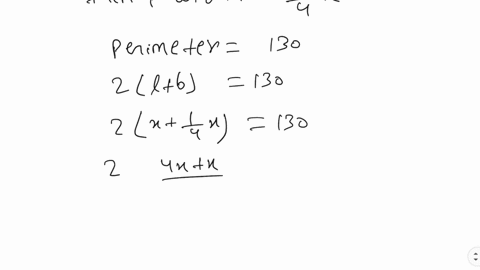 1/4 x
Perimeter = 130
2(l+b) = 130
2(x + 1/4 x) = 130
2 4x+x